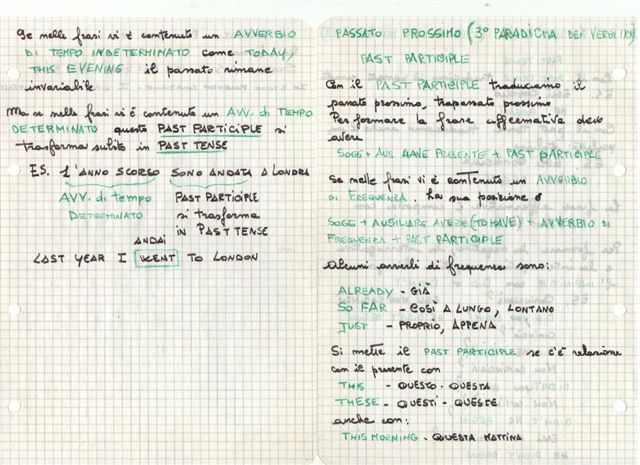 Se nelle frasi vi è contenuto un AVVERBIO
DI TEMPO INDETERMINATO come TODAY,
THIS EVENING il passato rimane
invariabile
Ma se nelle frasi vi è contenuto un AVV. di TEMPO
DETERMINATO questo PAST PARTICIPLE si
trasforma subito in PAST TENSE
ES. L'ANNO SCORSO SONO ANDATA A LONDRA
AVV. di tempo PAST PARTICIPLE
DETERMINATO si trasforma
in PAST TENSE
ANDAI
LAST YEAR I WENT TO LONDON
PASSATO PROSSIMO (3° PARADIGMA DEI VERBI IRR)
PAST PARTICIPLE
Con il PAST PARTICIPLE traduciamo il
passato prossimo, trapassato prossimo
Per formare la frase affermativa devo
avere
SOGG + AUS HAVE PRESENTE + PAST PARTICIPLE
Se nelle frasi vi è contenuto un AVVERBIO
DI FREQUENZA, la sua posizione è
SOGG + AUSILIARE AVERE (TO HAVE) + AVVERBIO DI
FREQUENZA + PAST PARTICIPLE
Alcuni avverbi di frequenza sono:
ALREADY - GIÀ
SO FAR - COSÌ A LUNGO, LONTANO
JUST - PROPRIO, APPENA
Si mette il PAST PARTICIPLE se c'è relazione
con il presente con
THIS - QUESTO - QUESTA
THESE - QUESTI - QUESTE
anche con:
THIS MORNING - QUESTA MATTINA